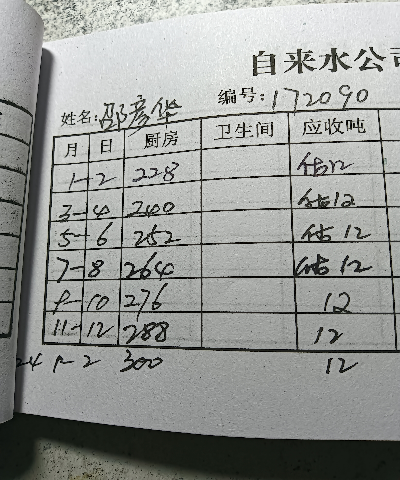 自来水公司
姓名:邵彦华 编号:172090
月 日 厨房 卫生间 应收吨
1-2 228 估12
3-4 240 估12
5-6 252 估12
7-8 264 估12
9-10 276 12
11-12 288 12
24 1-2 300 12